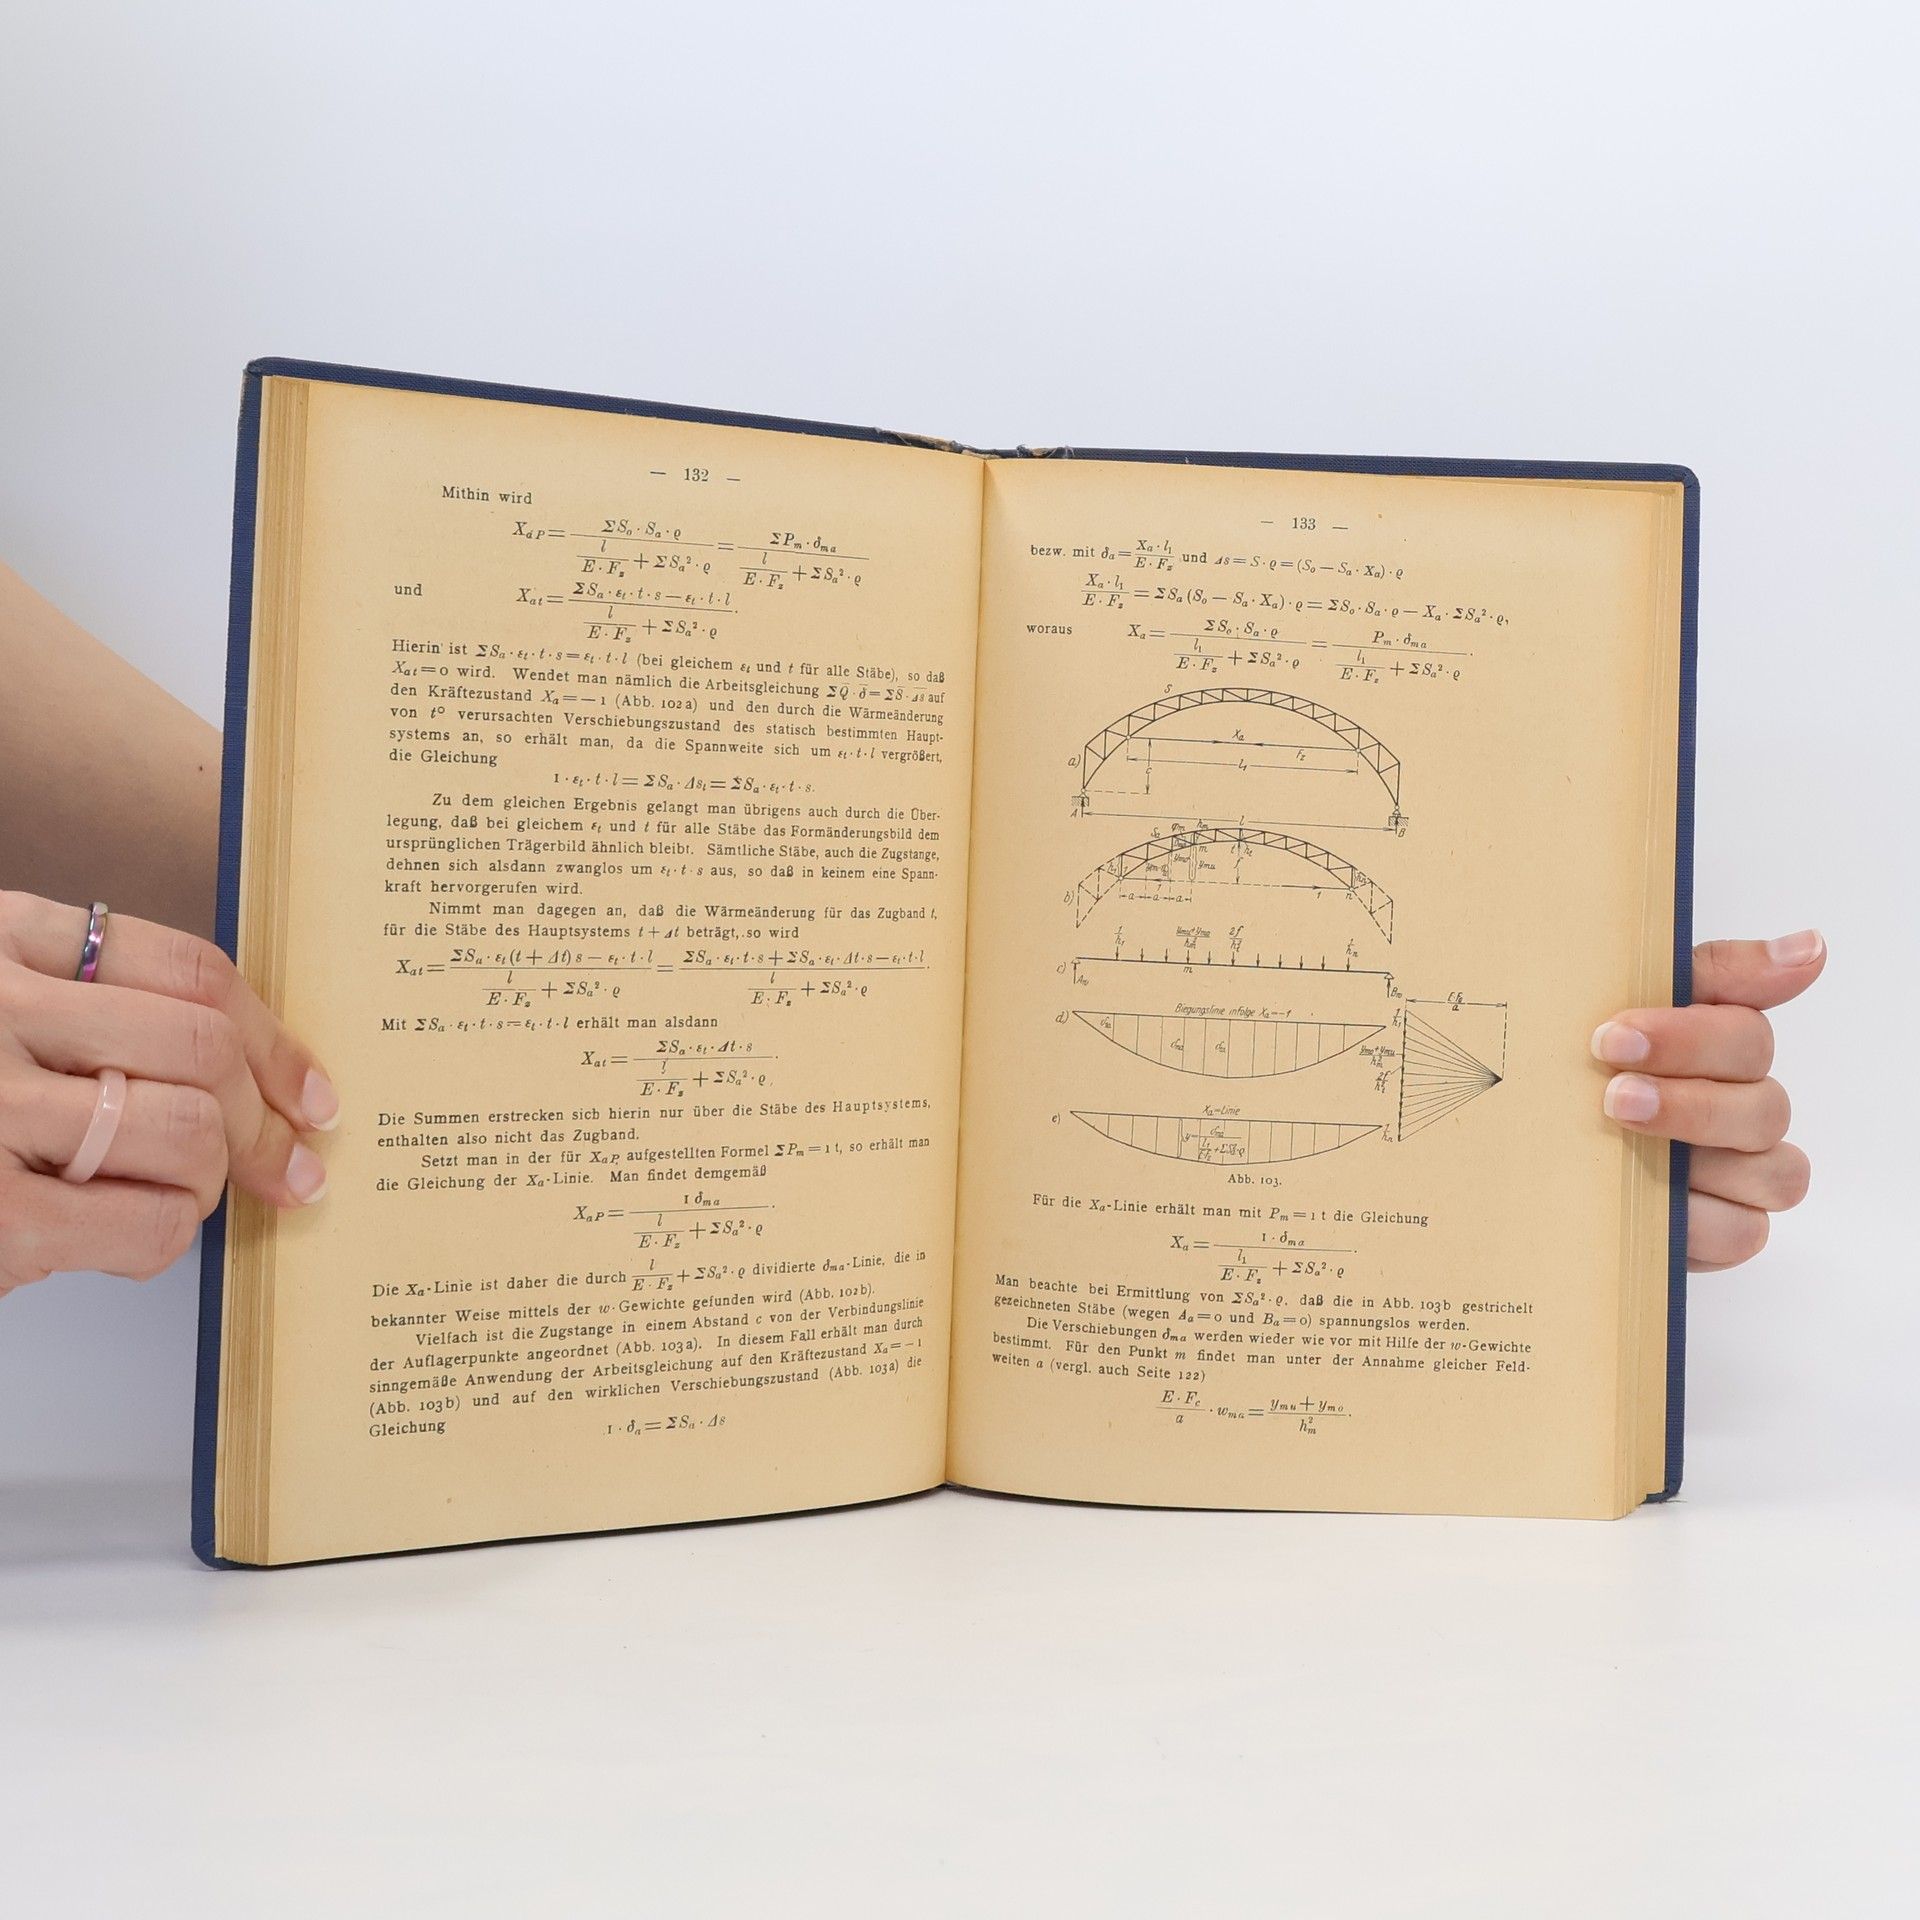 — 132 —
Mithin wird
X_{aP} = ΣS_o · S_a · ϱ / (l / (E · F_z) + ΣS_a² · ϱ) = ΣP_m · δ_{ma} / (l / (E · F_z) + ΣS_a² · ϱ)
und X_{at} = (ΣS_a · ε_t · t · s — ε_t · t · l) / (l / (E · F_z) + ΣS_a² · ϱ).
Hierin ist ΣS_a · ε_t · t · s = ε_t · t · l (bei gleichem ε_t und t für alle Stäbe), so daß
X_{at} = 0 wird. Wendet man nämlich die Arbeitsgleichung ΣQ̄ · δ̄ = ΣS̄ · Δs̄ auf
den Kräftezustand X_a = — 1 (Abb. 102 a) und den durch die Wärmeänderung
von t° verursachten Verschiebungszustand des statisch bestimmten Haupt-
systems an, so erhält man, da die Spannweite sich um ε_t · t · l vergrößert,
die Gleichung
1 · ε_t · t · l = ΣS_a · Δs_t = ΣS_a · ε_t · t · s.
Zu dem gleichen Ergebnis gelangt man übrigens auch durch die Über-
legung, daß bei gleichem ε_t und t für alle Stäbe das Formänderungsbild dem
ursprünglichen Trägerbild ähnlich bleibt. Sämtliche Stäbe, auch die Zugstange,
dehnen sich alsdann zwanglos um ε_t · t · s aus, so daß in keinem eine Spann-
kraft hervorgerufen wird.
Nimmt man dagegen an, daß die Wärmeänderung für das Zugband t,
für die Stäbe des Hauptsystems t + Δt beträgt, so wird
X_{at} = (ΣS_a · ε_t (t + Δt) s — ε_t · t · l) / (l / (E · F_z) + ΣS_a² · ϱ) = (ΣS_a · ε_t · t · s + ΣS_a · ε_t · Δt · s — ε_t · t · l) / (l / (E · F_z) + ΣS_a² · ϱ).
Mit ΣS_a · ε_t · t · s = ε_t · t · l erhält man alsdann
X_{at} = ΣS_a · ε_t · Δt · s / (l / (E · F_z) + ΣS_a² · ϱ).
Die Summen erstrecken sich hierin nur über die Stäbe des Hauptsystems,
enthalten also nicht das Zugband.
Setzt man in der für X_{aP} aufgestellten Formel ΣP_m = 1 t, so erhält man
die Gleichung der X_a-Linie. Man findet demgemäß
X_{aP} = 1 δ_{ma} / (l / (E · F_z) + ΣS_a² · ϱ).
Die X_a-Linie ist daher die durch l / (E · F_z) + ΣS_a² · ϱ dividierte δ_{ma}-Linie, die in
bekannter Weise mittels der w-Gewichte gefunden wird (Abb. 102 b).
Vielfach ist die Zugstange in einem Abstand c von der Verbindungslinie
der Auflagerpunkte angeordnet (Abb. 103 a). In diesem Fall erhält man durch
sinngemäße Anwendung der Arbeitsgleichung auf den Kräftezustand X_a = — 1
(Abb. 103 b) und auf den wirklichen Verschiebungszustand (Abb. 103 a) die
Gleichung 1 · δ_a = ΣS_a · Δs
— 133 —
bezw. mit δ_a = X_a · l_1 / (E · F_z) und Δs = S · ϱ = (S_o — S_a · X_a) · ϱ
X_a · l_1 / (E · F_z) = ΣS_a (S_o — S_a · X_a) · ϱ = ΣS_o · S_a · ϱ — X_a · ΣS_a² · ϱ,
woraus X_a = ΣS_o · S_a · ϱ / (l_1 / (E · F_z) + ΣS_a² · ϱ) = P_m · δ_{ma} / (l_1 / (E · F_z) + ΣS_a² · ϱ).
S
X_a
F_z
a)
l_1
c
A
l
B
b)
S_a
φ_m
h_m
m
t
h_t
f
y_{mo}
y_{mu}
h_1
1
1
h_n
n
a a a
c)
1/h_1
(y_{mu}+y_{mo})/h_m²
2f/h_t²
1/h_n
m
A_w
B_w
d)
Biegungslinie infolge X_a=-1
δ_{ma}
E·F_c/a
1/h_1
(y_{mo}+y_{mu})/h_m²
2f/h_t²
1/h_n
e)
X_a-Linie
y = δ_{ma} / (l_1/(E·F_z) + ΣS_a²·ϱ)
Abb. 103.
Für die X_a-Linie erhält man mit P_m = 1 t die Gleichung
X_a = 1 · δ_{ma} / (l_1 / (E · F_z) + ΣS_a² · ϱ).
Man beachte bei Ermittlung von ΣS_a² · ϱ, daß die in Abb. 103 b gestrichelt
gezeichneten Stäbe (wegen A_a = 0 und B_a = 0) spannungslos werden.
Die Verschiebungen δ_{ma} werden wieder wie vor mit Hilfe der w-Gewichte
bestimmt. Für den Punkt m findet man unter der Annahme gleicher Feld-
weiten a (vergl. auch Seite 122)
E · F_c / a · w_{ma} = (y_{mu} + y_{mo}) / h_m².